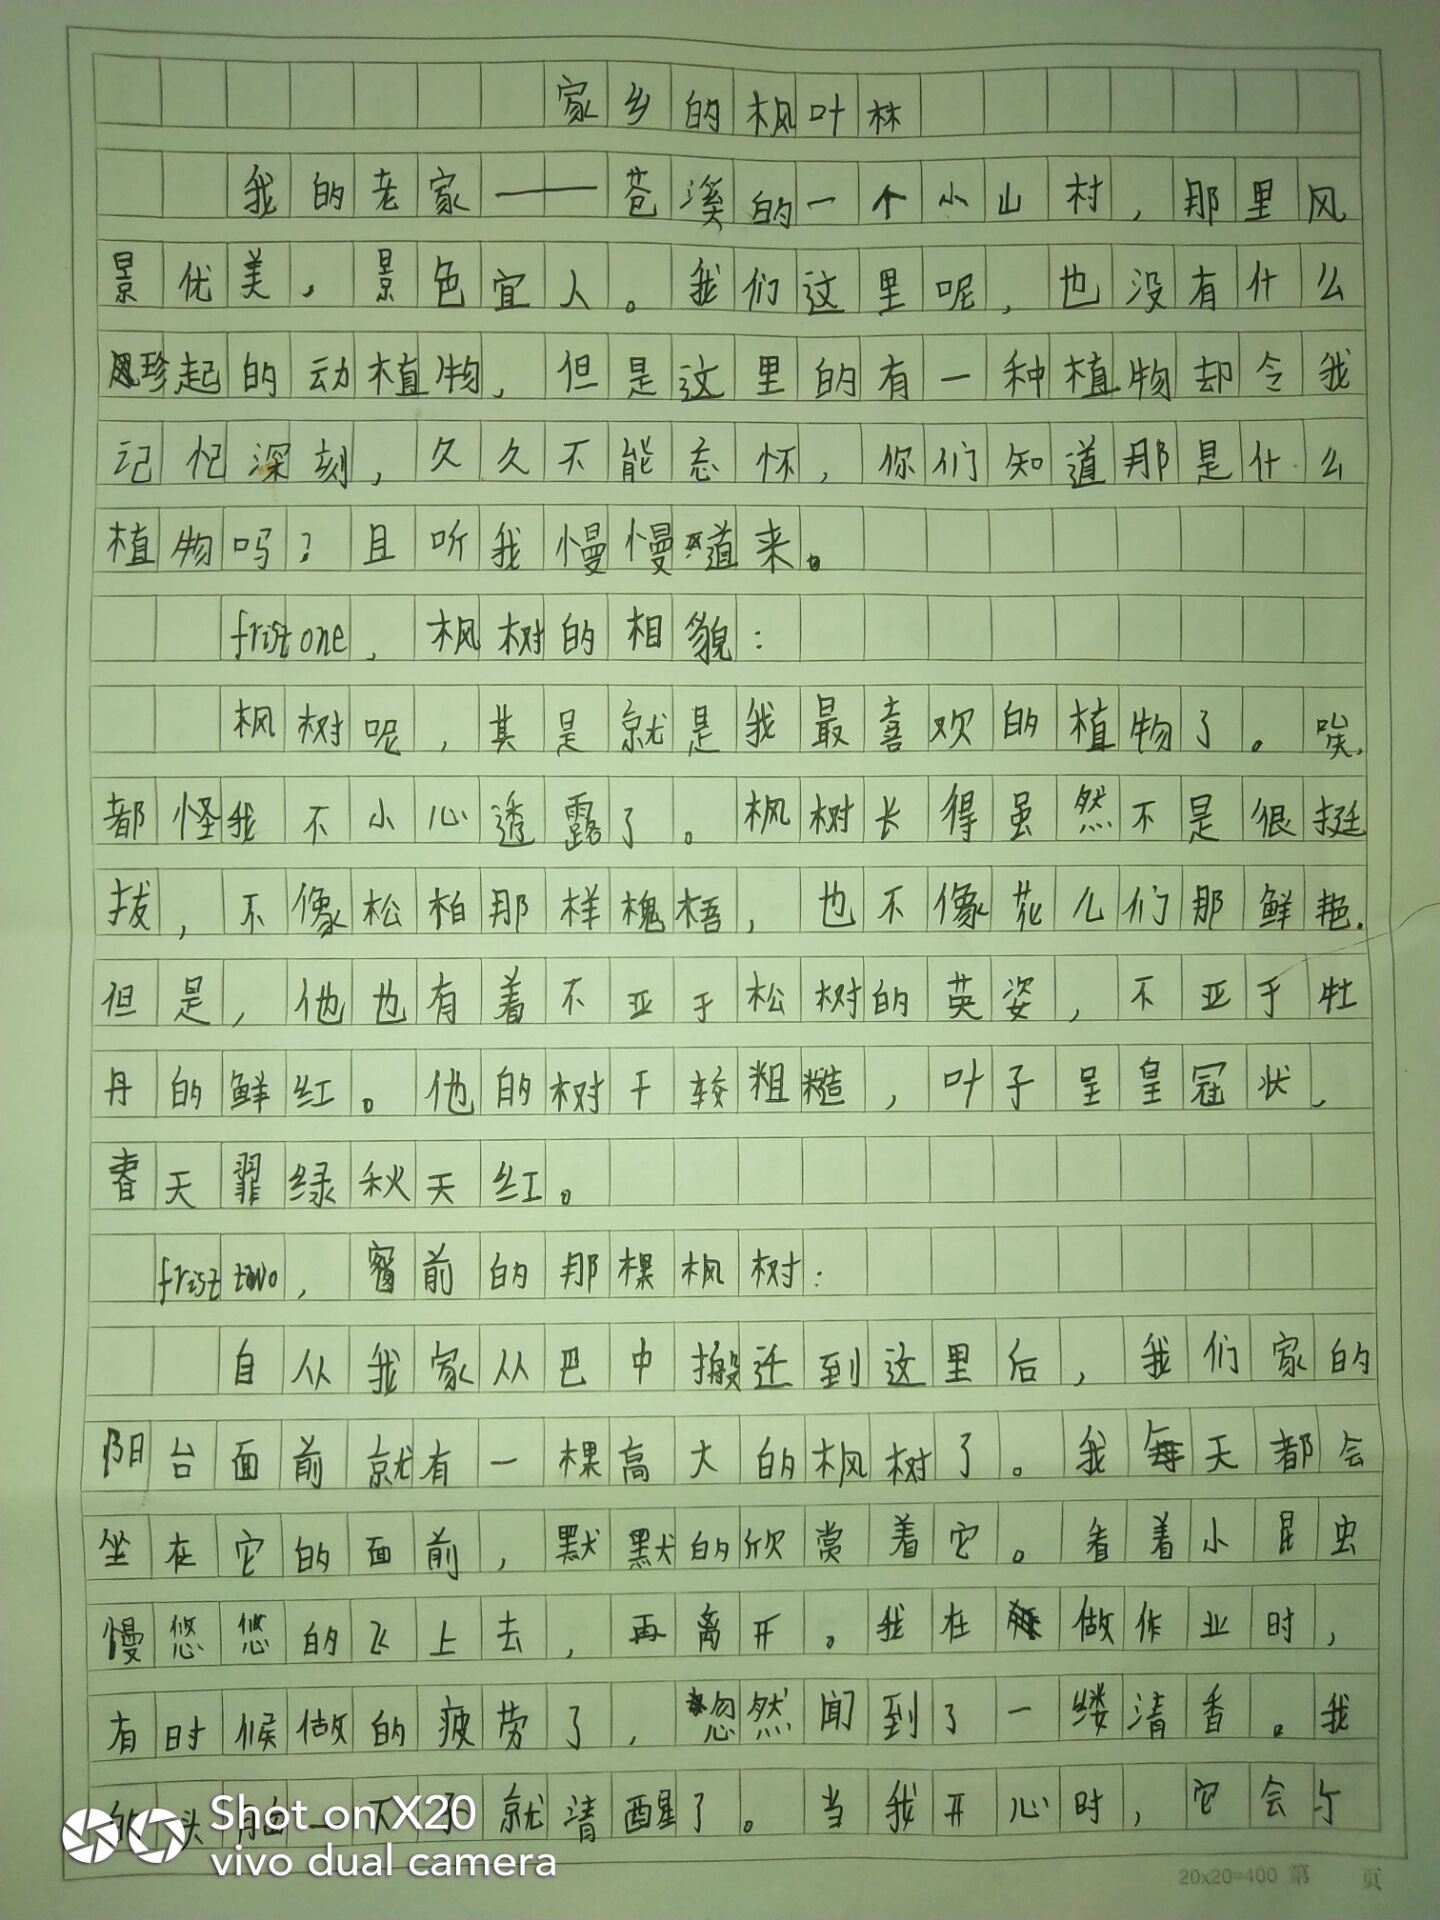 家乡的枫叶林
我的老家——苍溪的一个小山村，那里风
景优美，景色宜人。我们这里呢，也没有什么
珍起的动植物，但是这里的有一种植物却令我
记忆深刻，久久不能忘怀，你们知道那是什么
植物吗？且听我慢慢道来。
frist one，枫树的相貌：
枫树呢，其是就是我最喜欢的植物了。唉，
都怪我不小心透露了。枫树长得虽然不是很挺
拔，不像松柏那样槐梧，也不像花儿们那鲜艳．
但是，他也有着不亚于松树的英姿，不亚于牡
丹的鲜红。他的树干较粗糙，叶子呈皇冠状，
春天翡绿秋天红。
frist two，窗前的那棵枫树：
自从我家从巴中搬迁到这里后，我们家的
阳台面前就有一棵高大的枫树了。我每天都会
坐在它的面前，默默的欣赏着它。看着小昆虫
慢悠悠的飞上去，再离开。我在做作业时，
有时候做的疲劳了，忽然闻到了一缕清香。我
的头脑一下子就清醒了。当我开心时，它会
Shot on X20
vivo dual camera
20x20=400 第 页